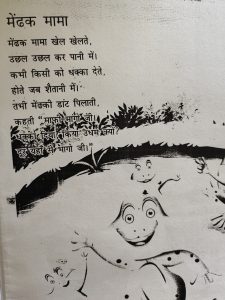 मेंढक मामा
मेंढक मामा खेल खेलते,
उछल उछल कर पानी में।
कभी किसी को धक्का देते,
होते जब शैतानी में।
तभी मेंढकी डांट पिलाती,
कहती "मामा जी।
धक्का किया उधम क्यों?
यहाँ से भागो जी।"